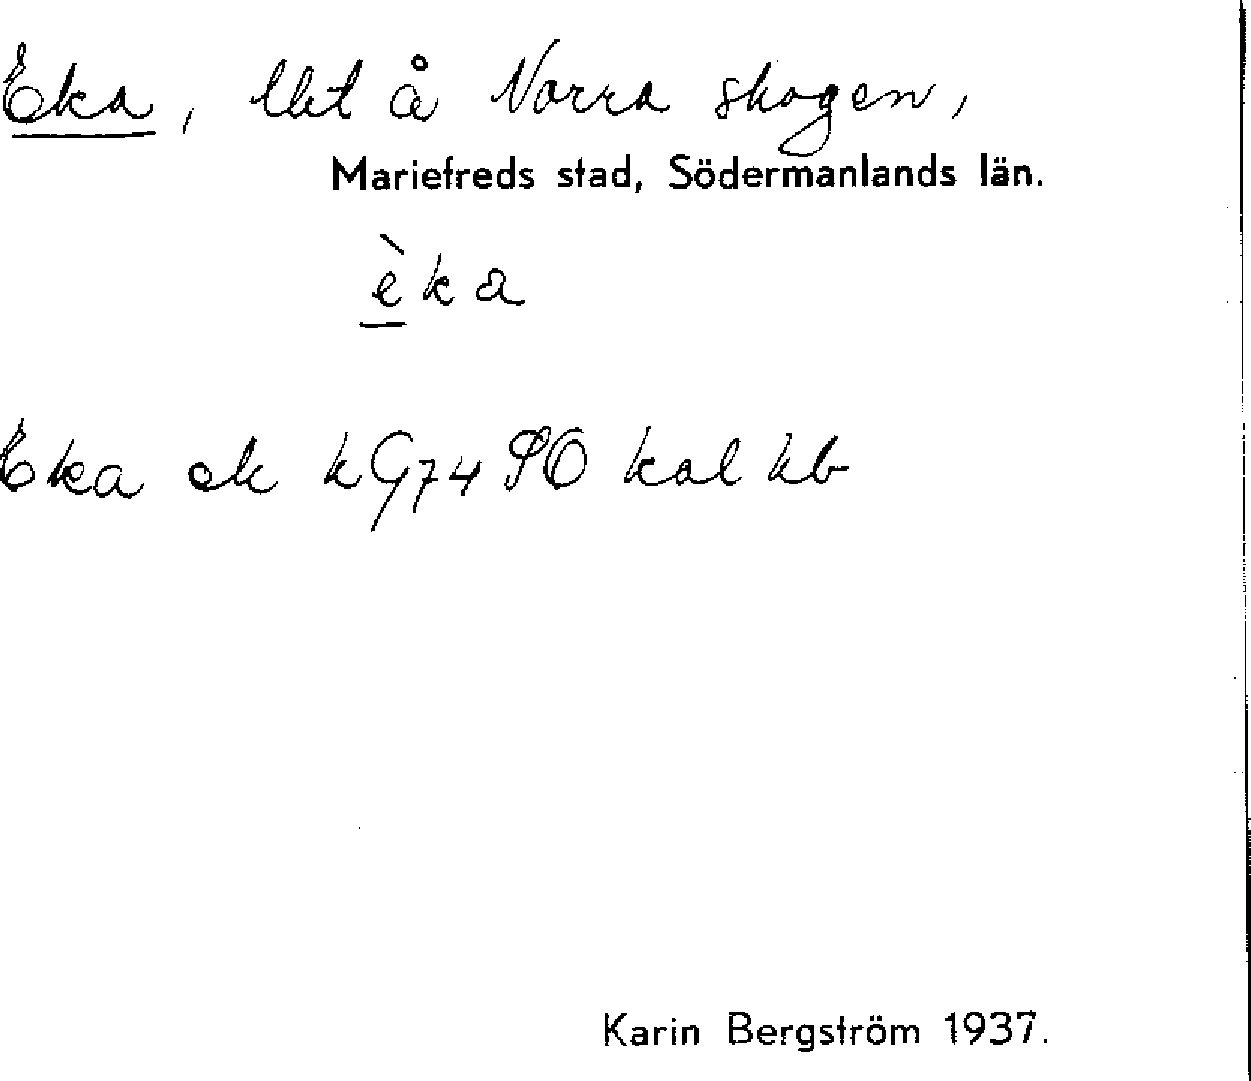 Eka, lht å Norra skogen,
Mariefreds stad, Södermanlands län.
èka
Eka ek kG74 SO kal hb
Karin Bergström 1937.